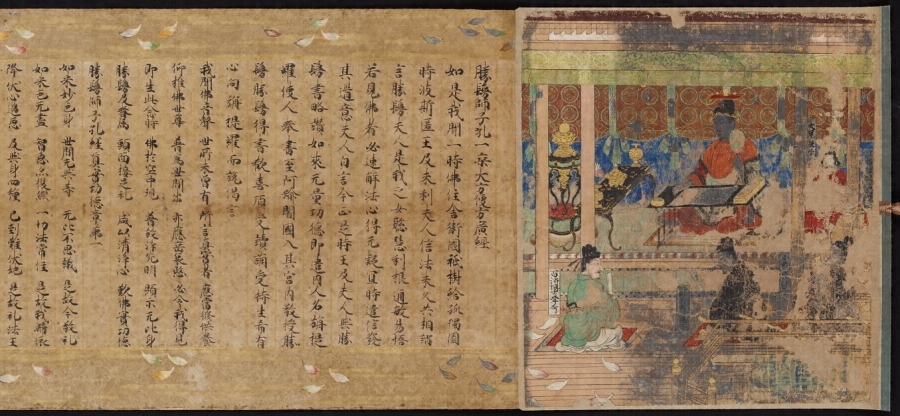 勝鬘師子孔一乘大方便方廣經
如是我聞一時佛住舍衛國祇樹給孤獨園
時波斯匿王及末利夫人信法未久共相謂
言勝鬘夫人是我之女聰慧利根通敏易悟
若見佛者必速解法心得无疑宜時遣信發
其道意夫人白言今正是時王及夫人與勝
鬘書略讃如來无量功德即遣內人名旃提
羅使人奉書至阿踰闍國入其宮內敬授勝
鬘勝鬘得書歡喜頂受讀誦受持生希有
心向旃提羅而說偈言
我聞佛音聲 世所未曾有 所言真實者 應當修供養
仰惟佛世尊 普為世間出 亦應垂哀愍 必令我得見
即生此念時 佛於空中現 普放淨光明 顯示无比身
勝鬘及眷屬 頭面接足礼 咸以清淨心 歎佛實功德
勝鬘師子孔經真實功德章第一
如來妙色身 世間无與等 无比不思議 是故今敬礼
如來色无盡 智慧亦復然 一切法常住 是故我歸依
降伏心過惡 及與身四種 已到難伏地 是故礼法王